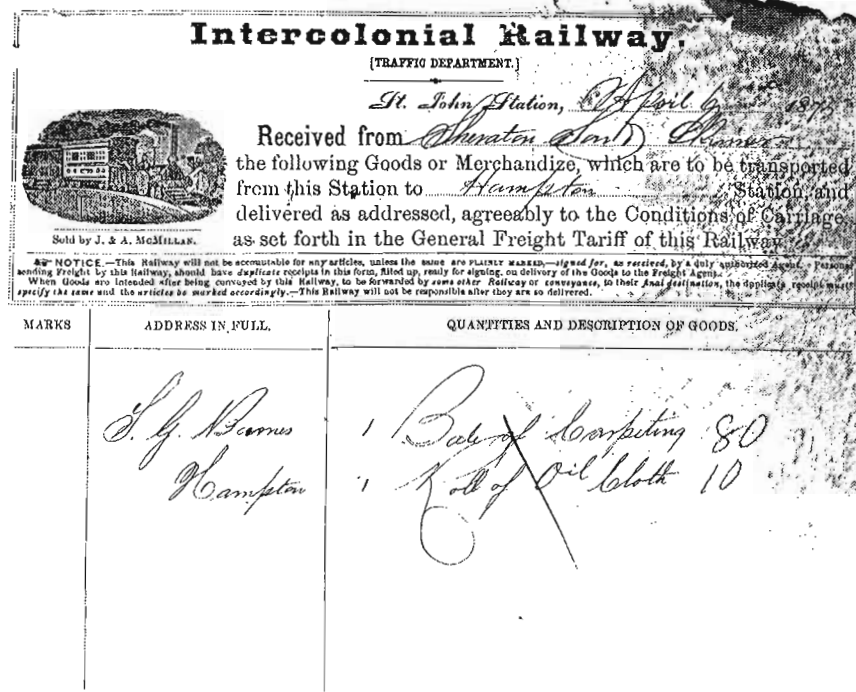 Intercolonial Railway.
[TRAFFIC DEPARTMENT.]
St. John Station, April 6 187
Received from Sheraton Son &
the following Goods or Merchandize, which are to be transported
from this Station to Hampton Station, and
delivered as addressed, agreeably to the Conditions of Carriage
as set forth in the General Freight Tariff of this Railway
Sold by J. & A. McMILLAN.
NOTICE.—This Railway will not be accountable for any articles, unless the same are PLAINLY MARKED,—signed for, as received, by a duly authorized Agent. Persons
sending Freight by this Railway, should have duplicate receipts in this form, filled up, ready for signing, on delivery of the Goods to the Freight Agent.
When Goods are intended after being conveyed by this Railway, to be forwarded by some other Railway or conveyance, to their final destination, the duplicate receipt must
specify the same and the articles be marked accordingly.—This Railway will not be responsible after they are so delivered.
MARKS ADDRESS IN FULL. QUANTITIES AND DESCRIPTION OF GOODS.
G. Barnes 1 Bale of Carpeting 80
Hampton 1 Roll of Oil Cloth 10